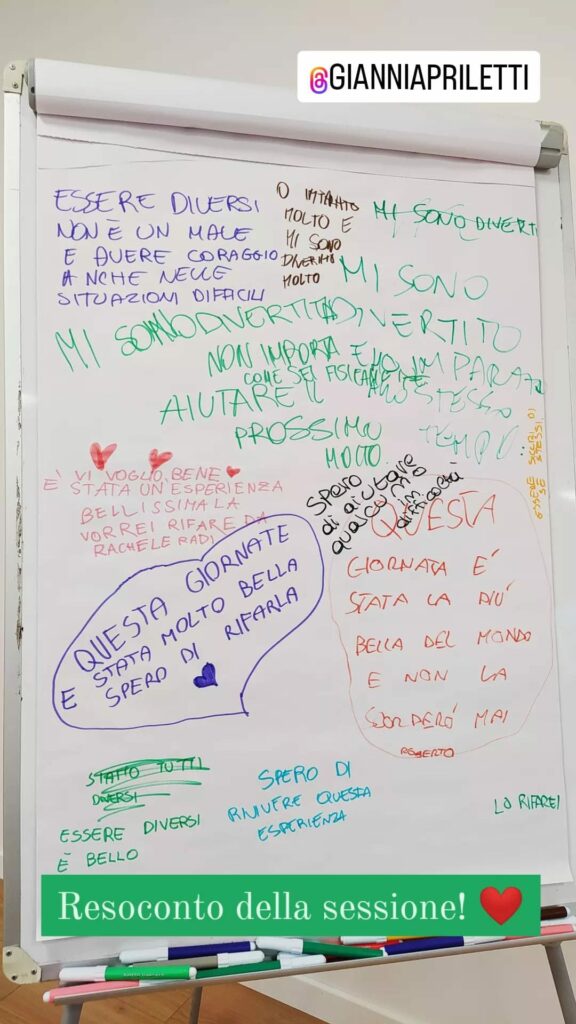 @GIANNIAPRILETTI
ESSERE DIVERSI
NON È UN MALE
E AVERE CORAGGIO
ANCHE NELLE
SITUAZIONI DIFFICILI
O IMPARATO
MOLTO E
MI SONO
DIVERTITO
MOLTO
MI SONO DIVERTI
MI SONO
DIVERTITO
MI SONO DIVERTITA
NON IMPORTA
COME SEI FISICAMENTE
E HO IMPARATO
ALLO STESSO
TEMPO
AIUTARE IL
PROSSIMO
MOLTO
ESSERE SICURI DI
SE STESSI
VI VOGLIO BENE
E' STATA UN'ESPERIENZA
BELLISSIMA LA
VORREI RIFARE DA
RACHELE RADI
SPERO
di aiutare
qualcuno
in
difficoltà
QUESTA GIORNATE
E STATA MOLTO BELLA
SPERO DI RIFARLA
QUESTA
GIORNATA E'
STATA LA PIÙ
BELLA DEL MONDO
E NON LA
SCORDERÓ MAI
ROBERTO
TUTTI
DIVERSI
ESSERE DIVERSI
È BELLO
SPERO DI
RIVIVERE QUESTA
ESPERIENZA
LO RIFAREI
Resoconto della sessione! ❤️